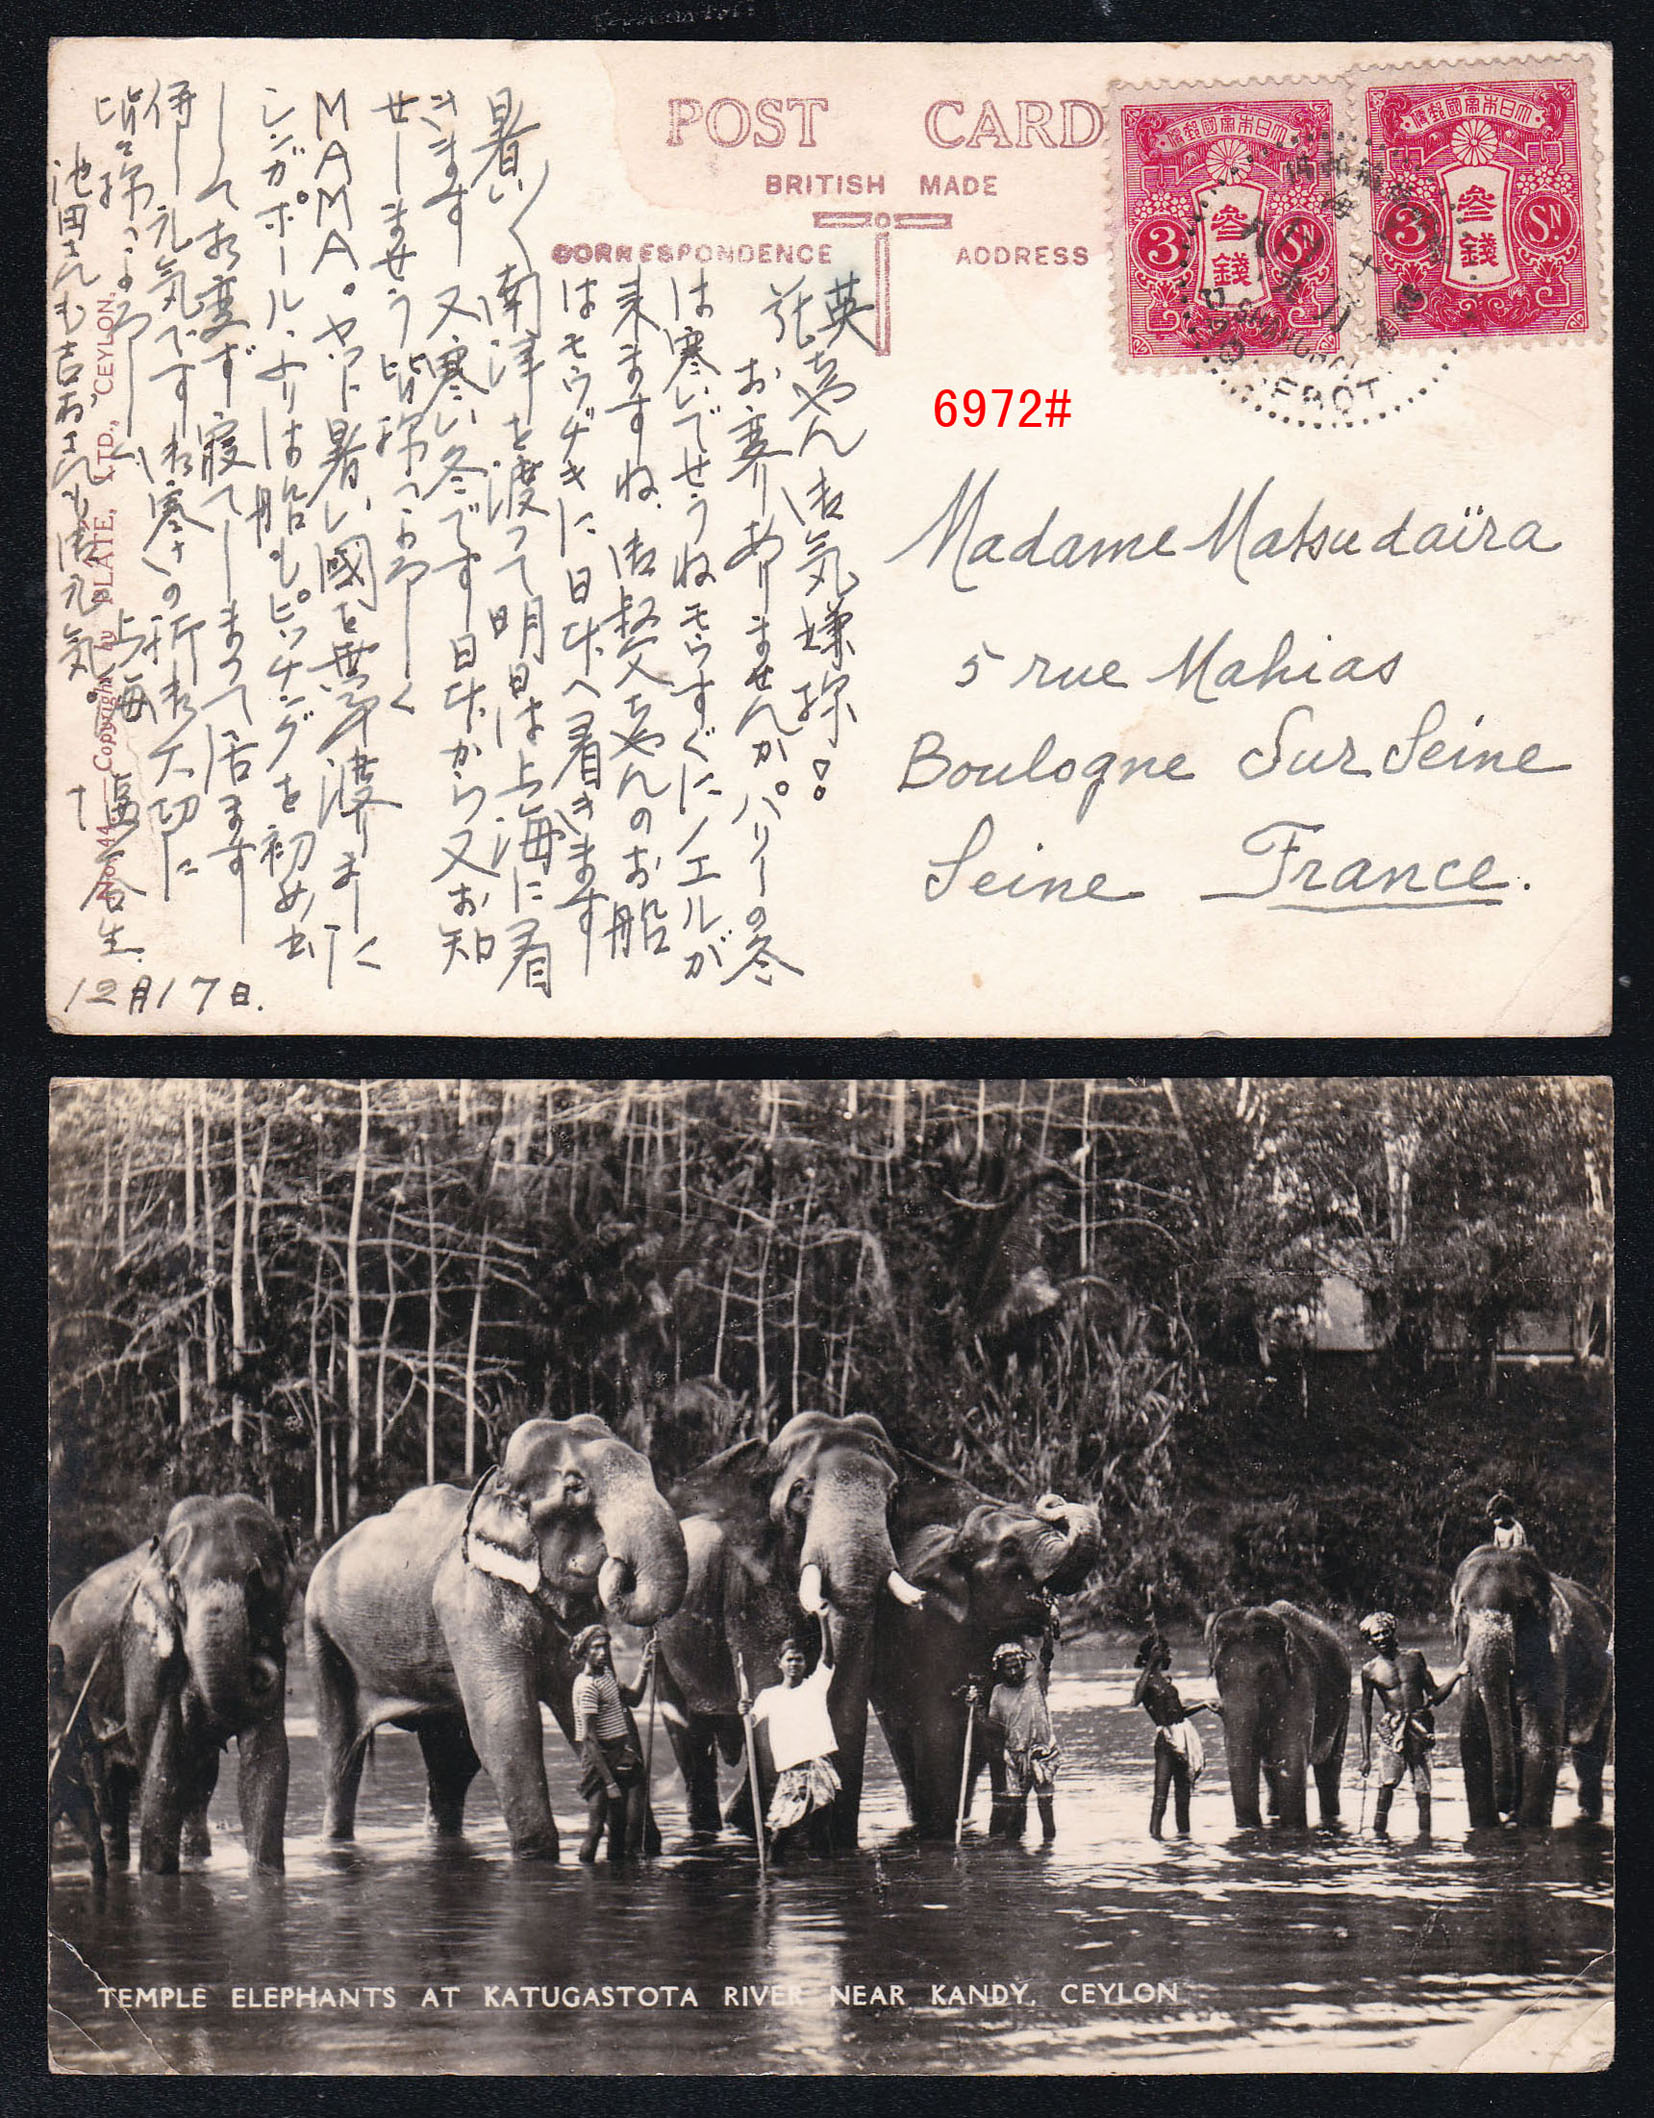 POST CARD
BRITISH MADE
CORRESPONDENCE
ADDRESS
大日本帝國郵便
3
SN
参銭
大日本帝國郵便
3
SN
参銭
6972#
Madame Matsudaïra
5 rue Mahias
Boulogne Sur Seine
Seine France.
英ちゃん御気嫌
お変りありませんかパリーの冬
は寒いでせうねモウすぐにノエルが
来ますね、御叔父ちゃんのお船
はモウヂキに日本へ着きます
暑い
南洋を渡って明日は上海に着
きます 又寒い冬です日本からお知
せしませう皆様
MAMA。ヤット暑い國を無事渡りました
シンガポールより船もピッチングを初め
して相変ず寝てしまって居ます
併し元気です御寒さの折御大切に
皆様によろしく
上海
池田さんも吉お元気。
12月17日.
No. 44.—Copyright by PLATE, LTD., CEYLON.
TEMPLE ELEPHANTS AT KATUGASTOTA RIVER NEAR KANDY, CEYLON